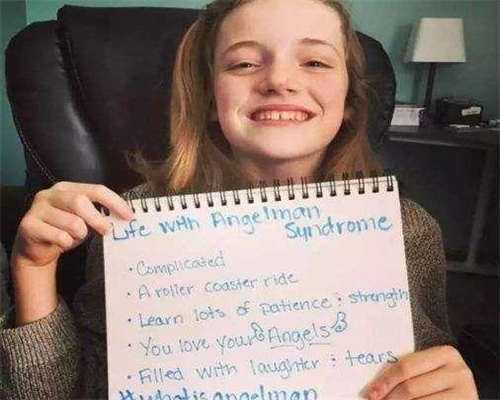 Life with Angelman
Syndrome
• Complicated
• A roller coaster ride
• Learn lots of patience & strength
• You love your Angels
• Filled with laughter & tears
#whatisangelman